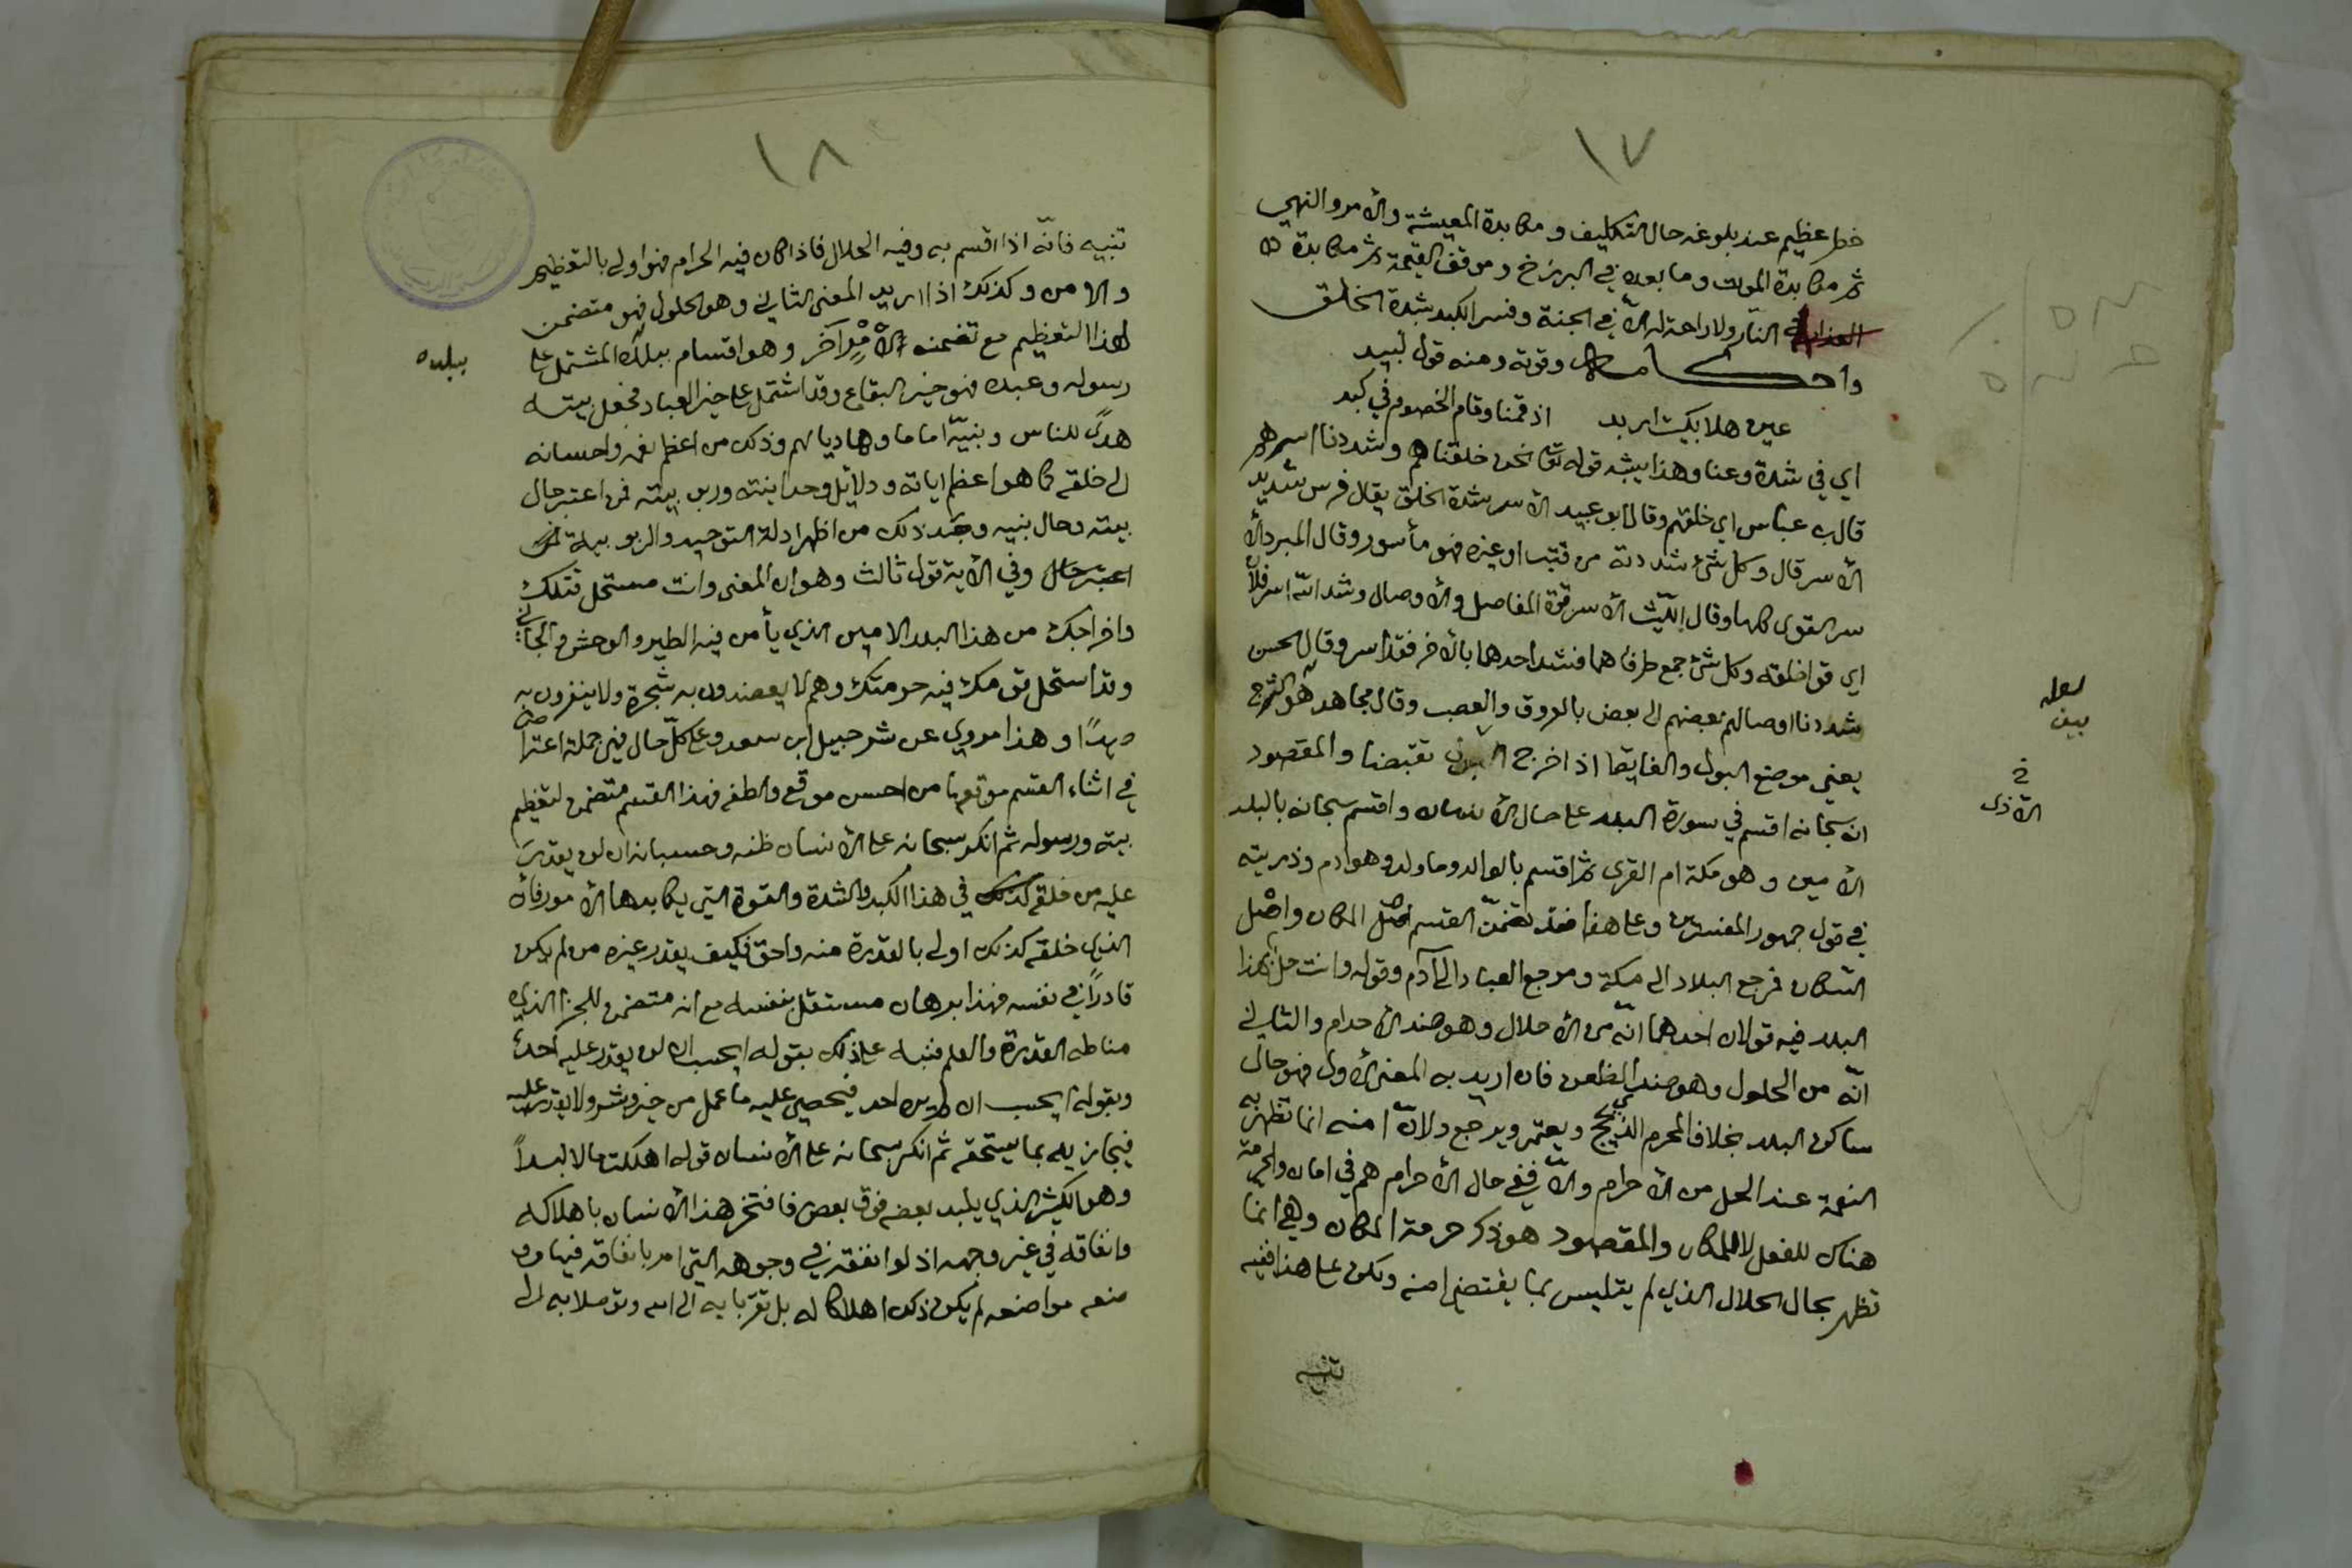 ١٧
خطر عظيم عند بلوغه حال التكليف ومكابدة المعيشة والأمر والنهي
ثم مكابدة الموت وما بعده في البرزخ وموقف القيمة ثم مكابدة
العذاب في النار ولا راحة له الا في الجنة وفسر الكبد بشدة الخلق
واحكامه وقوته ومنه قول لبيد
عين هلا بكيت اربد اذ قمنا وقام الخصوم في كبد
اي في شدة وعنا وهذا يشبه قوله تعا نحن خلقناهم وشددنا اسرهم
قال ب عباس اي خلقهم وقال ابو عبيد الأسر شدة الخلق يقال فرس شديد
الأسر قال وكل شئ شددته من قتب او غيره فهو مأسور وقال المبرد الأ
سر القوى كلها وقال الليث الأسر قوة المفاصل والأوصال وشد الله اسر فلان
اي قوا خلقه وكل شئ جمع طرفاهما فشد احدهما بالأخر فقد اسر وقال الحسن
شددنا اوصالهم بعضهم الى بعض بالعروق والعصب وقال مجاهد هو الشرج
يعني موضع البول والغايط اذا خرج تقبضا والمقصود
انه سبحانه اقسم في سورة البلد على حال الأنسان واقسم سبحانه بالبلد
الأمين وهو مكة ام القرى ثم اقسم بالوالد وما ولد وهو ادم وذريته
في قول جمهور المفسرين وعلى هذا فقد تضمن القسم اصل المكان واصل
السكان فرجع البلاد الى مكة ومرجع العباد الى آدم وقوله وانت حل بهذا
البلد فيه قولان احدهما انه من الأحلال وهو ضد الأحرام والثاني
انه من الحلول وهو ضد الظعن فان اريد به المعنى الأول فهو حال
ساكن البلد بخلاف المحرم الذي يحج ويعتمر ويرجع ولان امنه انما تظهر به
النعمة عند الحل من الأحرام والا ففي حال الأحرام هم في امان والحرمة
هناك للفعل لا للمكان والمقصود هو ذكر حرمة المكان وهي انما
تظهر بحال الحلال الذي لم يتلبس بما يقتضي امنه ولكن على هذا ففيه
تنبيه
لعله
بين
خ
الأذى
١٨
تنبيه فانه اذا اقسم به وفيه الحلال فاذا كان فيه الحرام فهو اولى بالتعظيم
والامن وكذلك اذا اريد المعنى الثاني وهو الحلول فهو متضمن
لهذا التعظيم مع تضمنه الأمر اخر وهو اقسام ببلده المشتمل على
رسوله وعبده فهو خير البقاع وقد اشتمل على خير العباد فجعل بيته
هدى للناس ونبيه اماما وهاديا لهم وذلك من اعظم نعمه واحسانه
الى خلقه كما هو اعظم اياته ودلايل وحدانيته وربوبيته فمن اعتبر حال
بيته وحال نبيه وجد ذلك من اظهر ادلة التوحيد والربوبية فمن
اعتبر حال وفي الأية قول ثالث وهو ان المعنى وانت مستحل قتلك
واخراجك من هذا البلد الامين الذي يأمن فيه الطير والوحش والجاني
وقد استحل قومك فيه حرمتك وهم لا يعضدون به شجرة ولا ينفرون به
صيدا وهذا مروي عن شرحبيل ابن سعد وعلى كل حال فهي جملة اعتراض
في اثناء القسم موقعها من احسن موقع والطفه فهذا القسم متضمن لتعظيم
بيته ورسوله ثم انكر سبحانه على الأنسان ظنه وحسبانه ان لن يقدر
عليه من خلقه كذلك في هذا الكبد والشدة والقوة التي يكابدها الأمور فان
الذي خلقه كذلك اولى بالقدرة منه واحق فكيف يقدر غيره من لم يكن
قادرا في نفسه فهذا برهان مستقل بنفسه مع انه متضمن للجزا الذي
مناطه القدرة والعلم فنبه على ذلك بقوله ايحسب ان لن يقدر عليه احد
وبقوله ايحسب ان لم يره احد فيحصي عليه ما عمل من خير وشر ولا يقدر عليه
فيجازيه بما يستحقه ثم انكر سبحانه على الأنسان قوله اهلكت مالا لبدا
وهو الكثير الذي يلبد بعضه فوق بعض فافتخر هذا الأنسان باهلاكه
وانفاقه في غير وجهه اذ لو انفقه في وجوهه التي امر بانفاقه فيها وو
ضعه مواضعه لم يكن ذلك اهلاكا له بل تقربا به الى الله وتوصلا به الى
ببلده